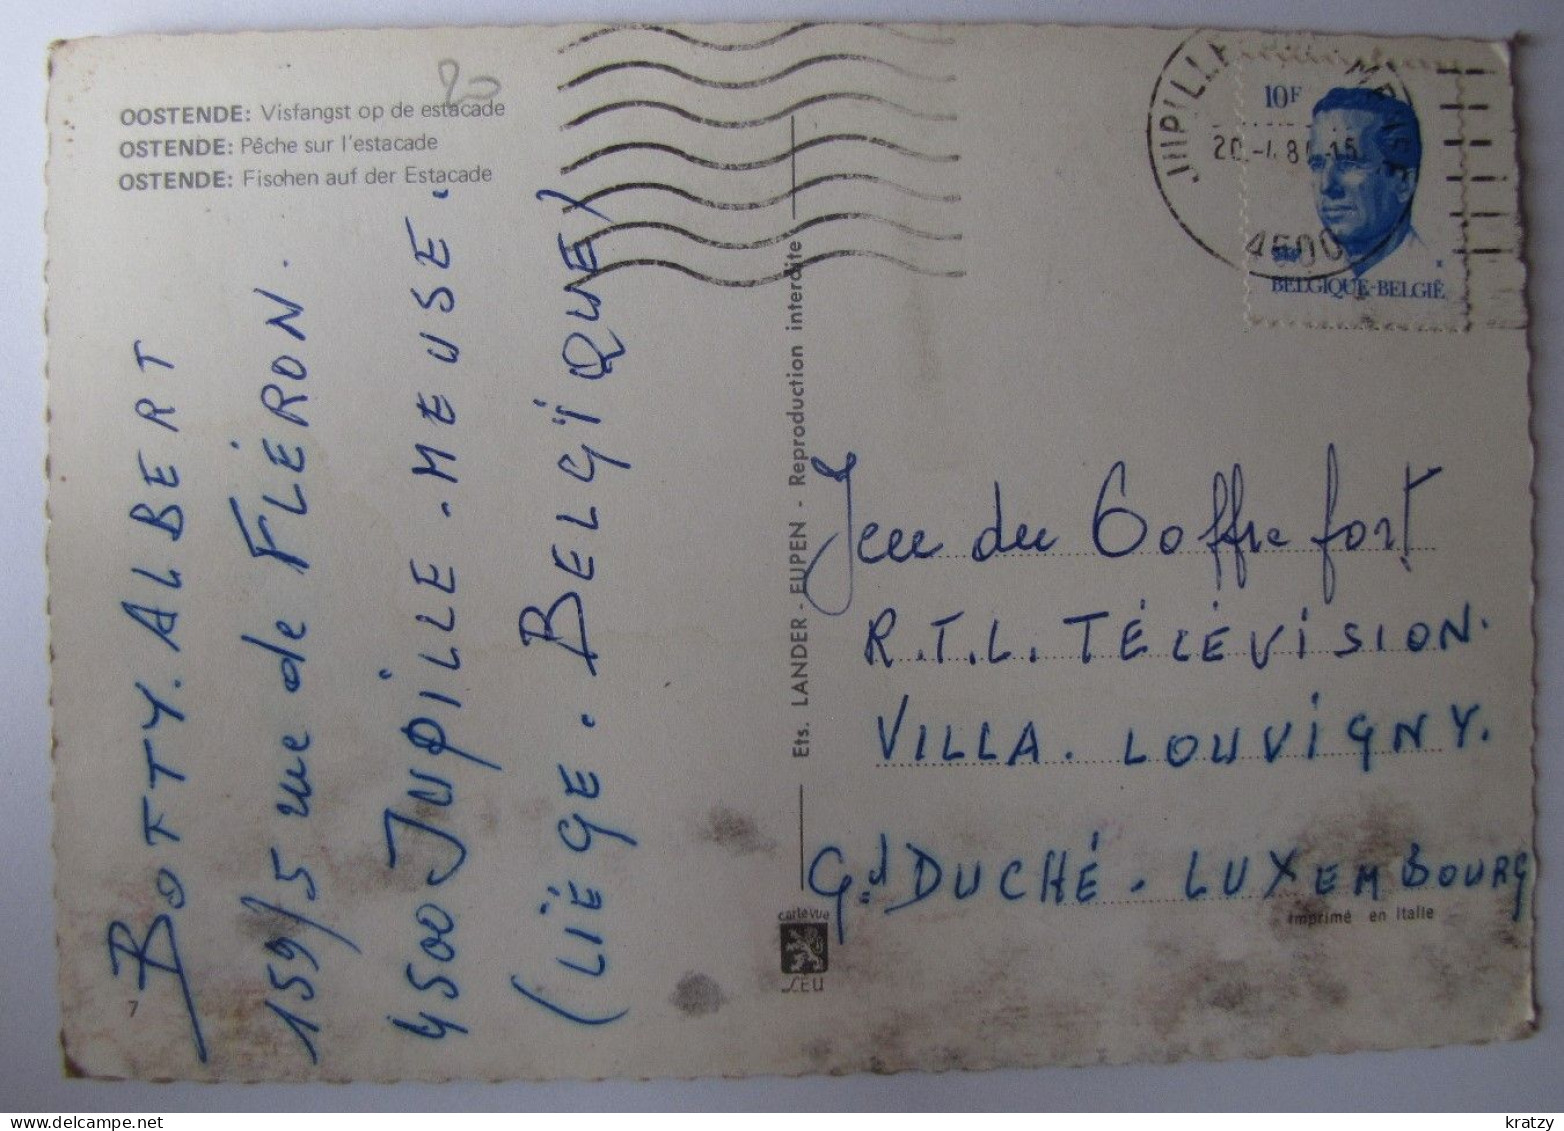 OOSTENDE: Visfangst op de estacade
OSTENDE: Pêche sur l'estacade
OSTENDE: Fisohen auf der Estacade
20
BOTTY. ALBERT
159/5 rue de FLÉRON.
4500 JUPILLE. MEUSE.
(LIÈGE. BELGÏQUE)
7
Ets. LANDER - EUPEN - Reproduction interdite
carte vue
LEU
10F
BELGIQUE-BELGIË
4500
Jeu du Coffre fort
R.T.L. TÉLÉVISION.
VILLA. LOUVIGNY.
Gd DUCHÉ. LUXEMBOURG
imprimé en Italie
www.delcampe.net
kratzy